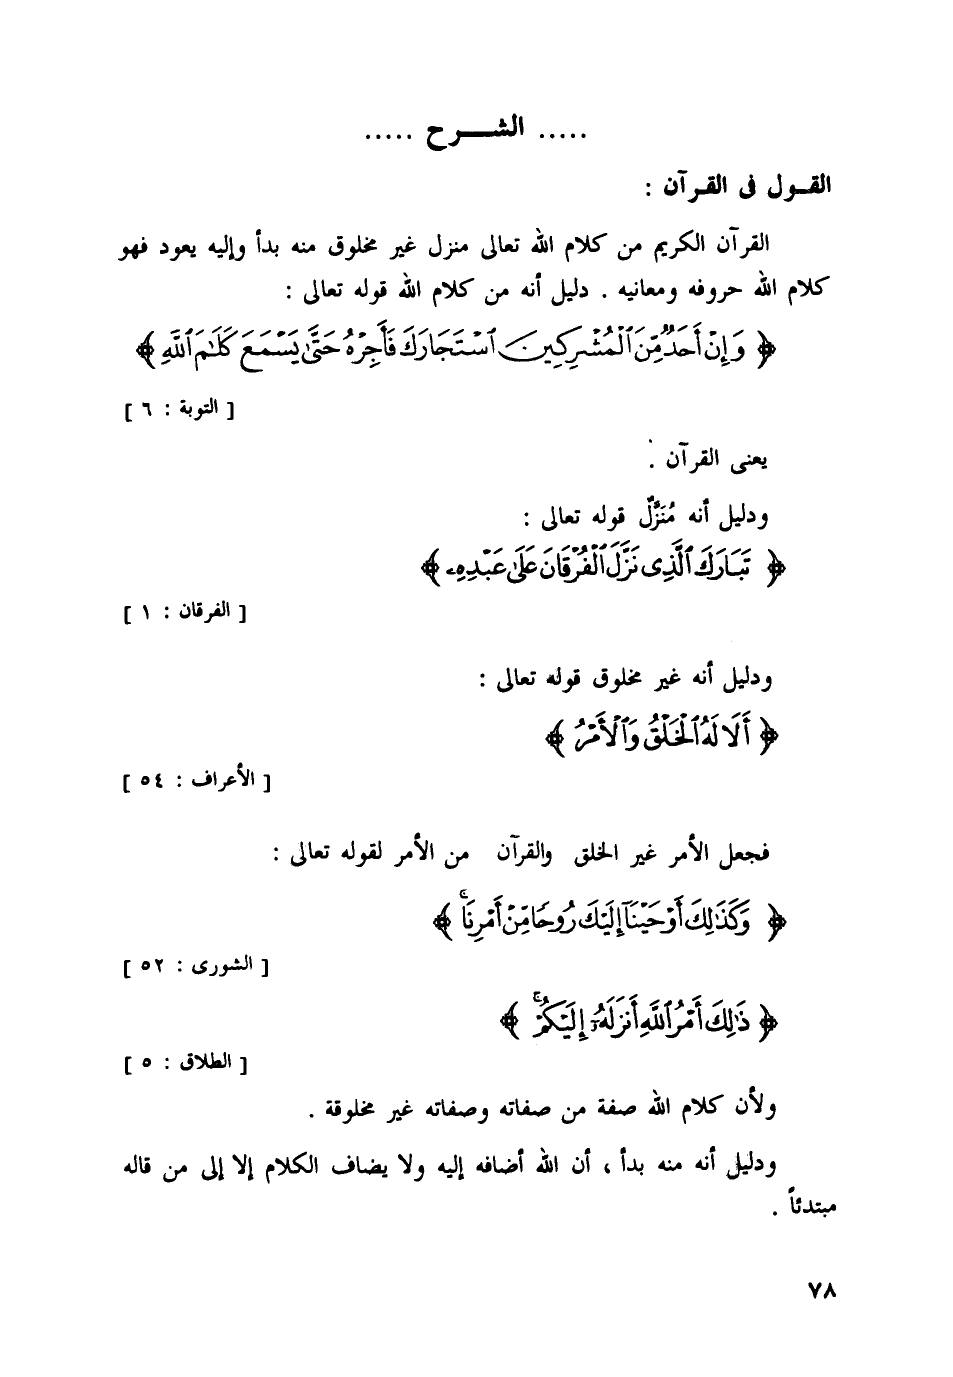 ..... الشـــرح .....
القـول فى القـرآن :
القرآن الكريم من كلام الله تعالى منزل غير مخلوق منه بدأ وإليه يعود فهو
كلام الله حروفه ومعانيه . دليل أنه من كلام الله قوله تعالى :
﴿ وَإِنْ أَحَدٌ مِّنَ ٱلْمُشْرِكِينَ ٱسْتَجَارَكَ فَأَجِرْهُ حَتَّىٰ يَسْمَعَ كَلَٰمَ ٱللَّهِ ﴾
[ التوبة : ٦ ]
يعنى القرآن .
ودليل أنه مُنَزَّلٌ قوله تعالى :
﴿ تَبَارَكَ ٱلَّذِى نَزَّلَ ٱلْفُرْقَانَ عَلَىٰ عَبْدِهِۦ ﴾
[ الفرقان : ١ ]
ودليل أنه غير مخلوق قوله تعالى :
﴿ أَلَا لَهُ ٱلْخَلْقُ وَٱلْأَمْرُ ﴾
[ الأعراف : ٥٤ ]
فجعل الأمر غير الخلق والقرآن من الأمر لقوله تعالى :
﴿ وَكَذَٰلِكَ أَوْحَيْنَآ إِلَيْكَ رُوحًا مِّنْ أَمْرِنَا ۚ ﴾
[ الشورى : ٥٢ ]
﴿ ذَٰلِكَ أَمْرُ ٱللَّهِ أَنزَلَهُۥٓ إِلَيْكُمْ ۚ ﴾
[ الطلاق : ٥ ]
ولأن كلام الله صفة من صفاته وصفاته غير مخلوقة .
ودليل أنه منه بدأ ، أن الله أضافه إليه ولا يضاف الكلام إلا إلى من قاله
مبتدئاً .
٧٨